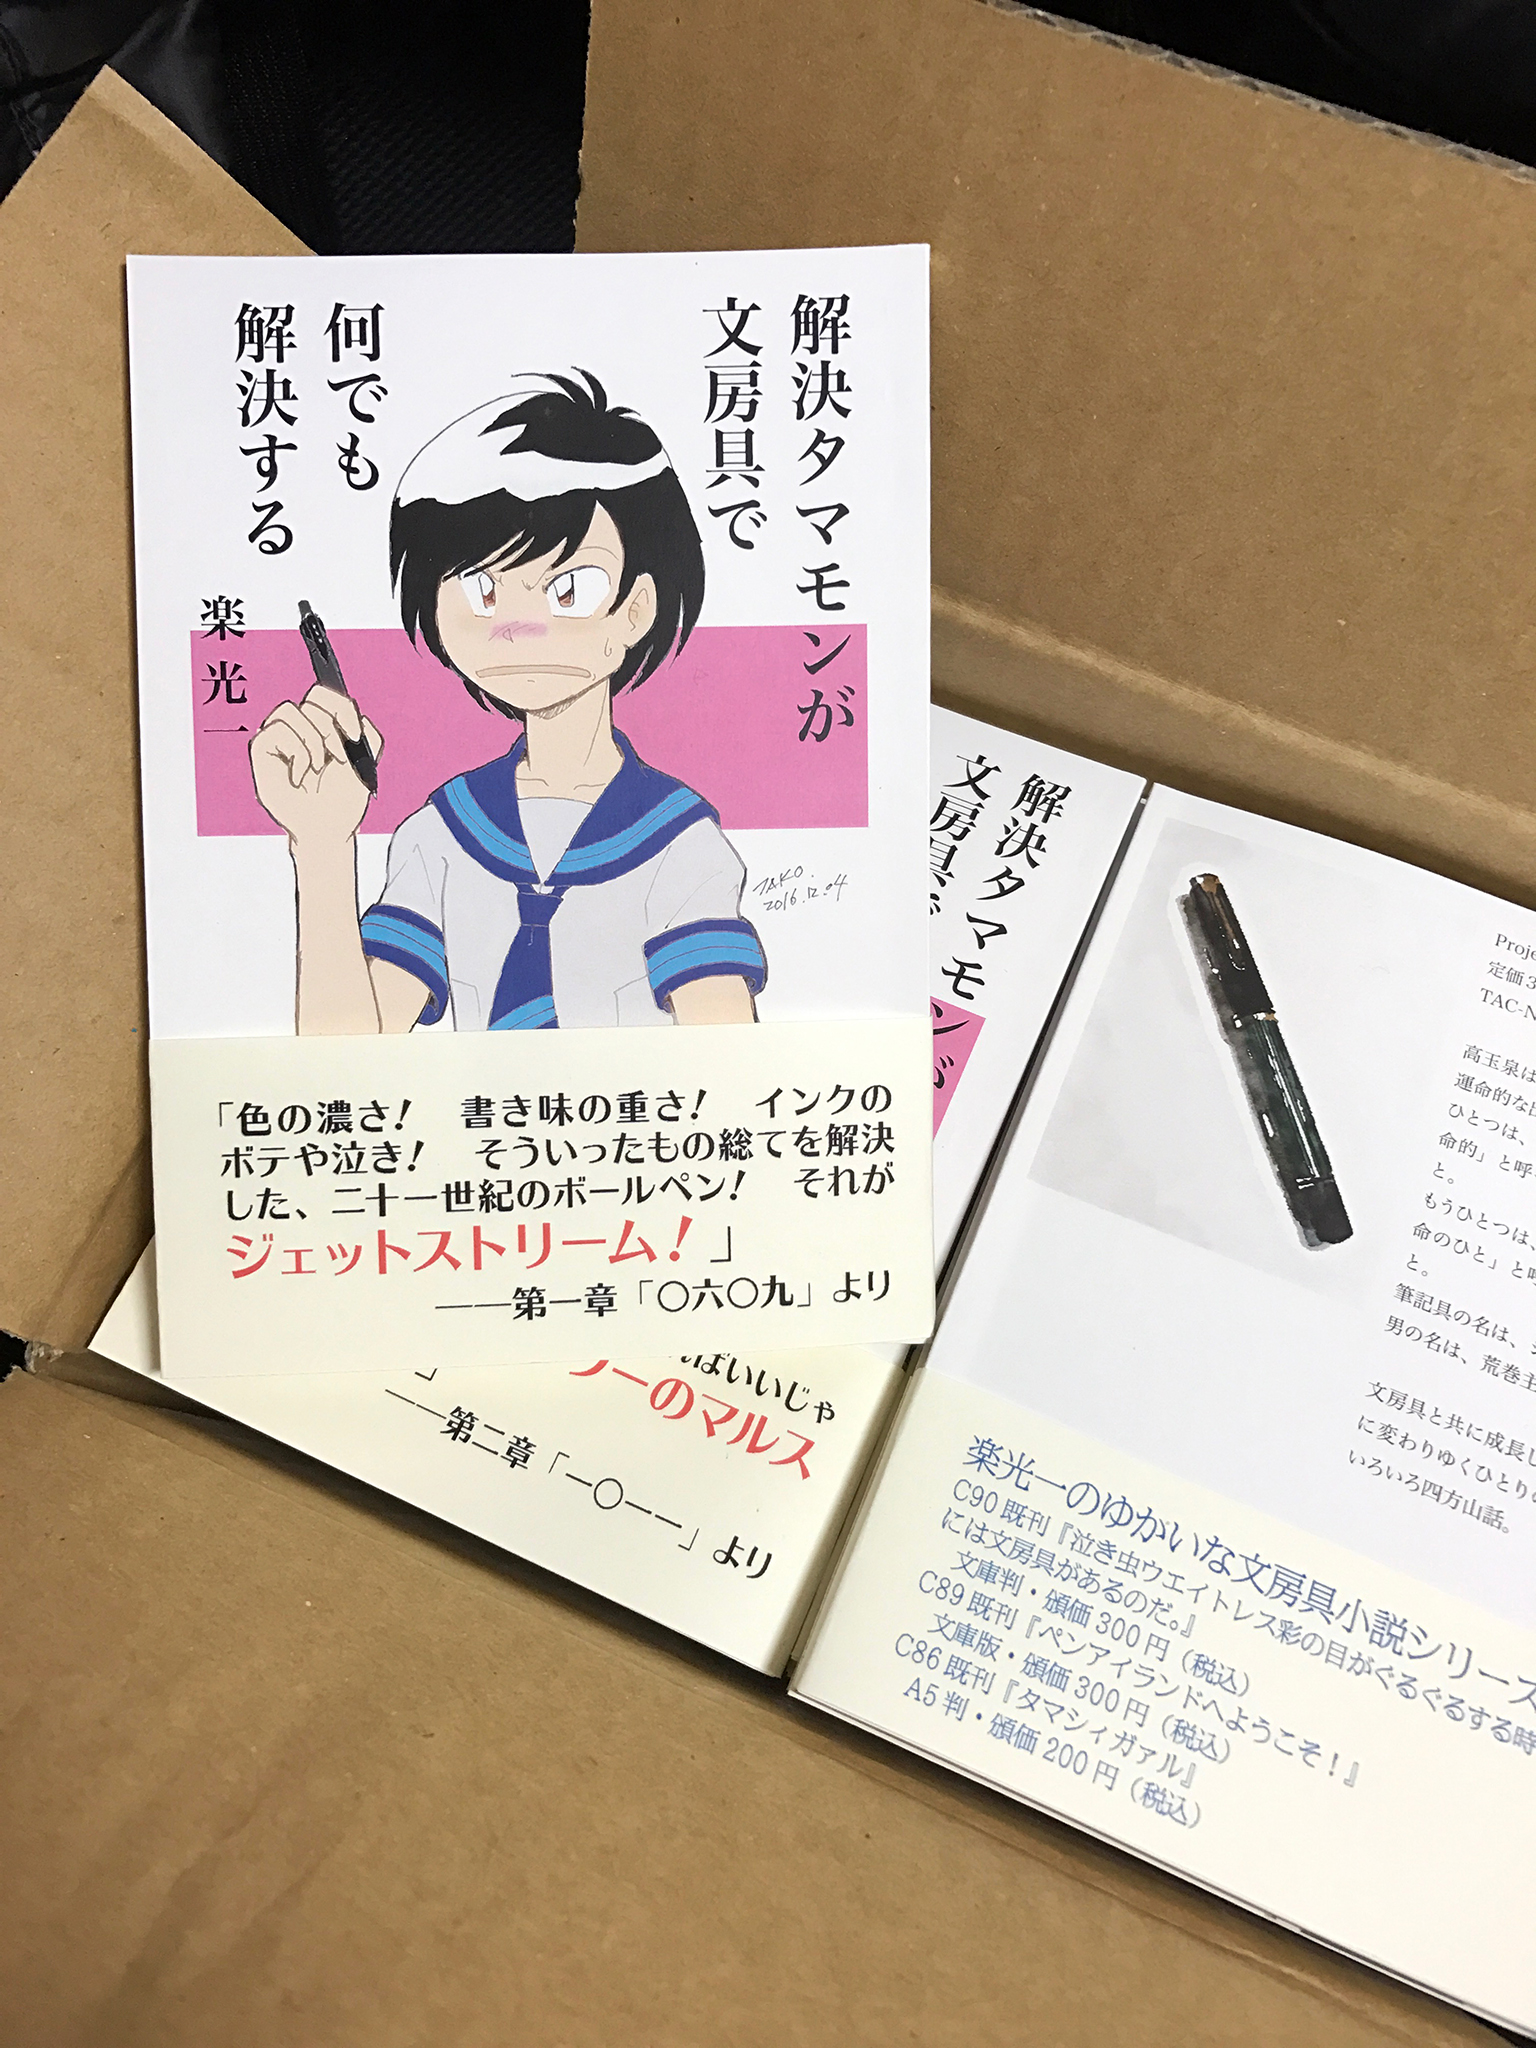 解決タマモンが
文房具で
何でも
解決する
楽光一
TAKO.
2016.12.04
「色の濃さ！　書き味の重さ！　インクの
ボテや泣き！　そういったもの総てを解決
した、二十一世紀のボールペン！　それが
ジェットストリーム！」
——第一章「〇六〇九」より
ばいいじゃ
ーのマルス
」
——第二章「一〇一一」より
解決タマモンが
文房具で
Proje
定価3
TAC-N
高玉泉は
運命的な出
ひとつは、
命的」と呼
と。
もうひとつは、
命のひと」と呼
と。
筆記具の名は、シ
男の名は、荒巻主
文房具と共に成長し
に変わりゆくひとりの
いろいろ四方山話。
楽光一のゆかいな文房具小説シリーズ
C90既刊『泣き虫ウエイトレス彩の目がぐるぐるする時
には文房具があるのだ。』
文庫判・頒価300円（税込）
C89既刊『ペンアイランドへようこそ！』
文庫版・頒価300円（税込）
C86既刊『タマシィガァル』
A5判・頒価200円（税込）